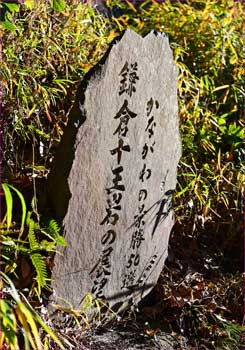 かながわの景勝50選
鎌倉十王岩の展望